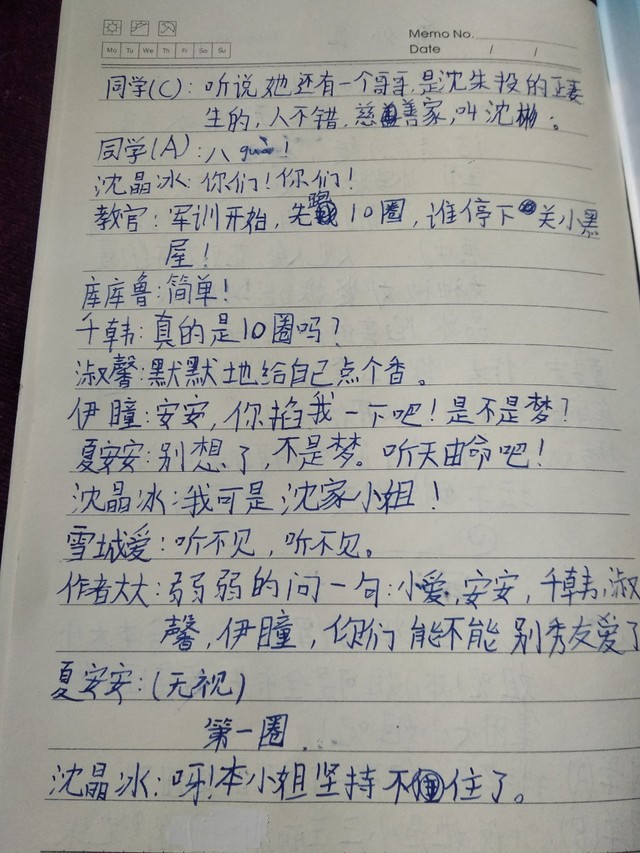 Memo No.
Mo Tu We Th Fr Sa Su
Date / /
同学(C): 听说她还有一个哥哥,是沈朱投的正妻
生的,人不错,慈善家,叫沈彬。
同学(A): 八guà!
沈晶冰: 你们!你们!
教官: 军训开始,先跑10圈,谁停下关小黑
屋!
库库鲁:简单!
千韩:真的是10圈吗?
淑馨:默默地给自己点个香。
伊瞳:安安,你掐我一下吧!是不是梦?
夏安安:别想了,不是梦。听天由命吧!
沈晶冰:我可是沈家小姐!
雪城爱:听不见,听不见。
作者大大:弱弱的问一句:小爱,安安,千韩,淑
馨,伊瞳,你们能不能别秀友爱了
夏安安:(无视)
第一圈...
沈晶冰:呀!本小姐坚持不住了。